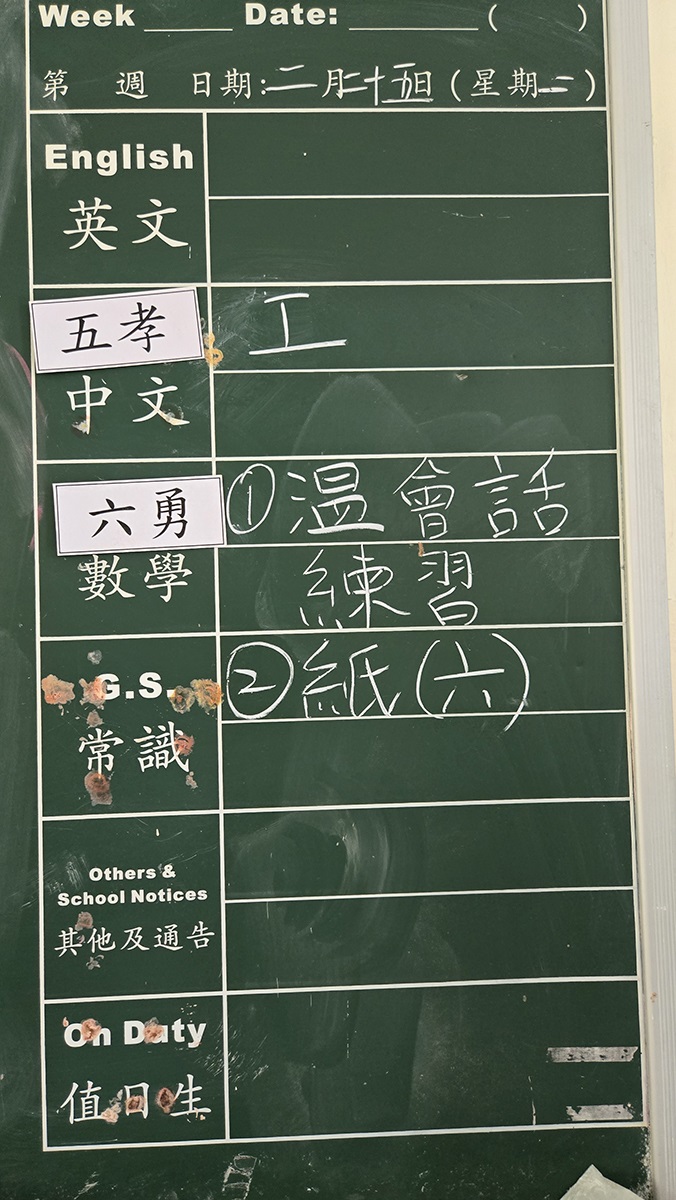 Week ______ Date: _________ (      )
第 週 日期:二月二十五日(星期二)
English
英文
五孝
工
中文
六勇
①温會話
數學
練習
G.S.
②紙(六)
常識
Others &
School Notices
其他及通告
On Duty
值日生